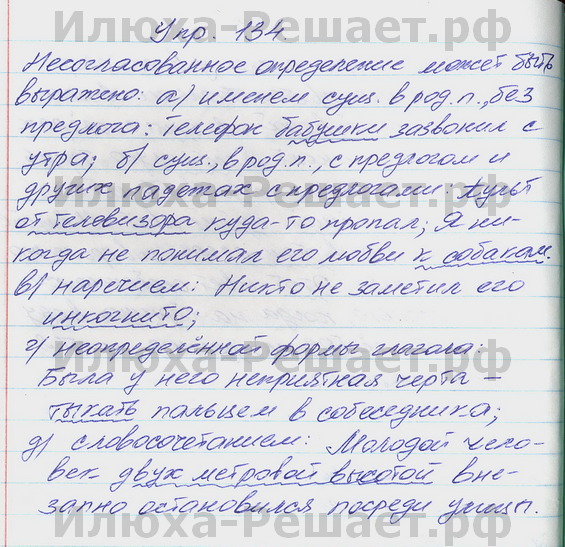 Илюха-Решает.рф
Упр. 134.
Несогласованное определение может быть
выражено: а) именем сущ. в род. п., без
предлога: Телефон бабушки зазвонил с
утра; б) сущ., в род. п., с предлогом и
других падежах с предлогами: Пульт
от телевизора куда-то пропал; Я ни-
когда не понимал его любви к собакам.
в) наречием: Никто не заметил его
инкогнито;
г) неопределённой формы глагола:
Была у него неприятная черта –
тыкать пальцем в собеседника;
д) словосочетанием: Молодой чело-
век двух метровой высотой вне-
запно остановился посреди улицы.
Илюха-Решает.рф